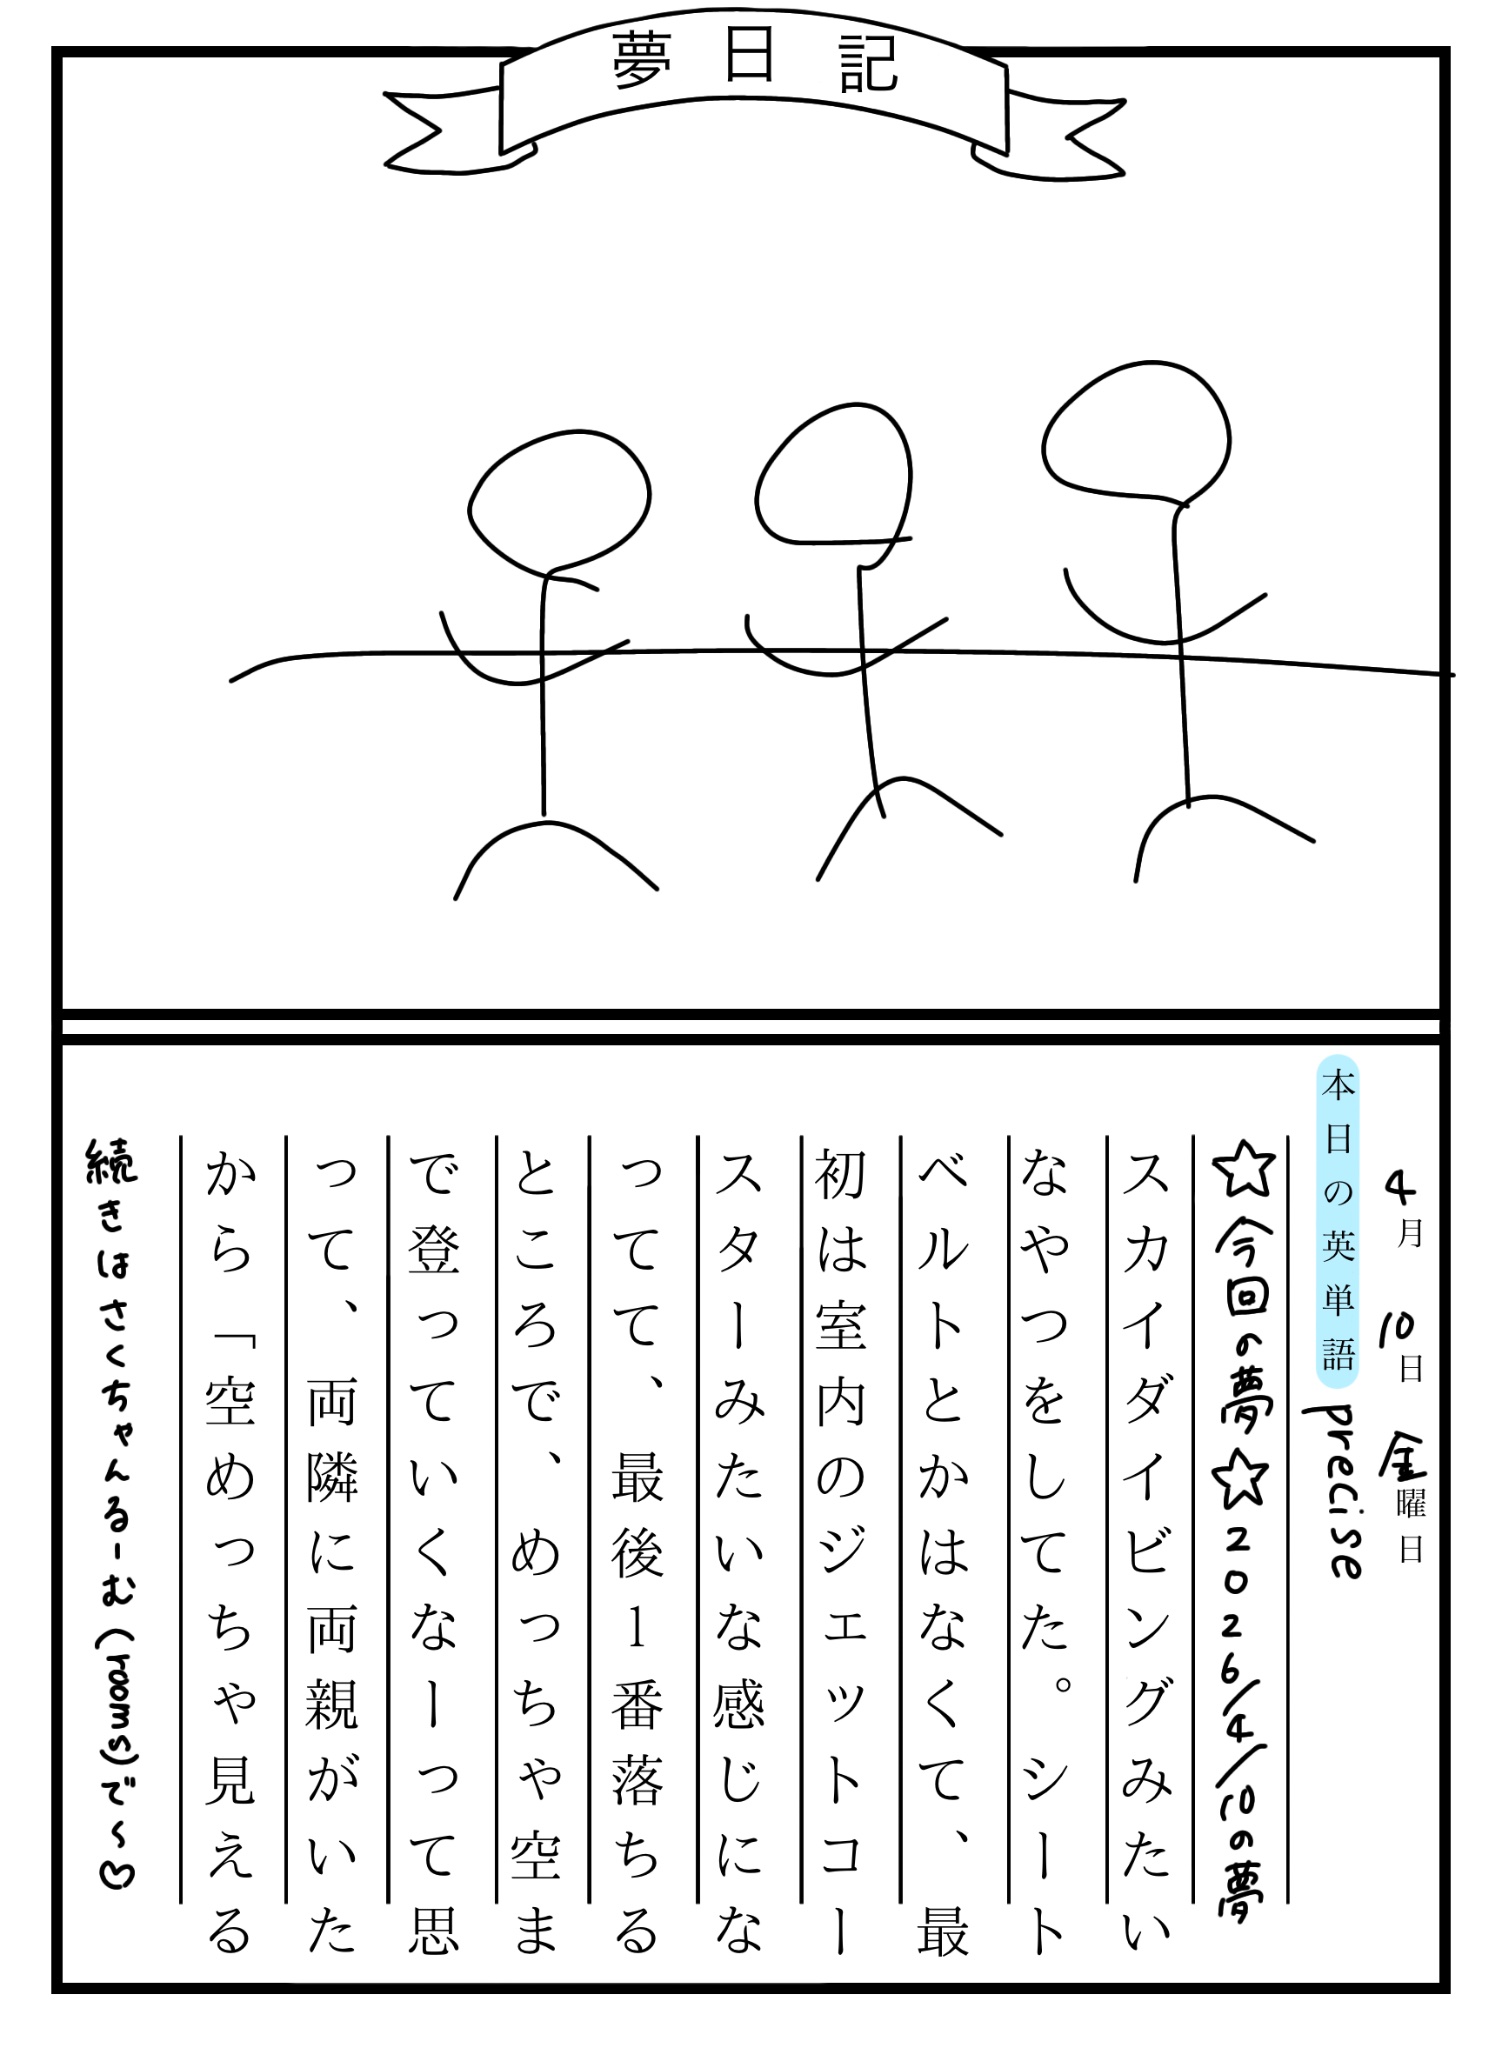 夢日記
4月10日金曜日
本日の英単語 precise
☆今回の夢☆2026/4/10の夢
スカイダイビングみたい
なやつをしてた。シート
ベルトとかはなくて、最
初は室内のジェットコー
スターみたいな感じにな
ってて、最後1番落ちる
ところで、めっちゃ空ま
で登っていくなーって思
って、両隣に両親がいた
から「空めっちゃ見える
続きはさくちゃんるーむ(rooms)で〜♡